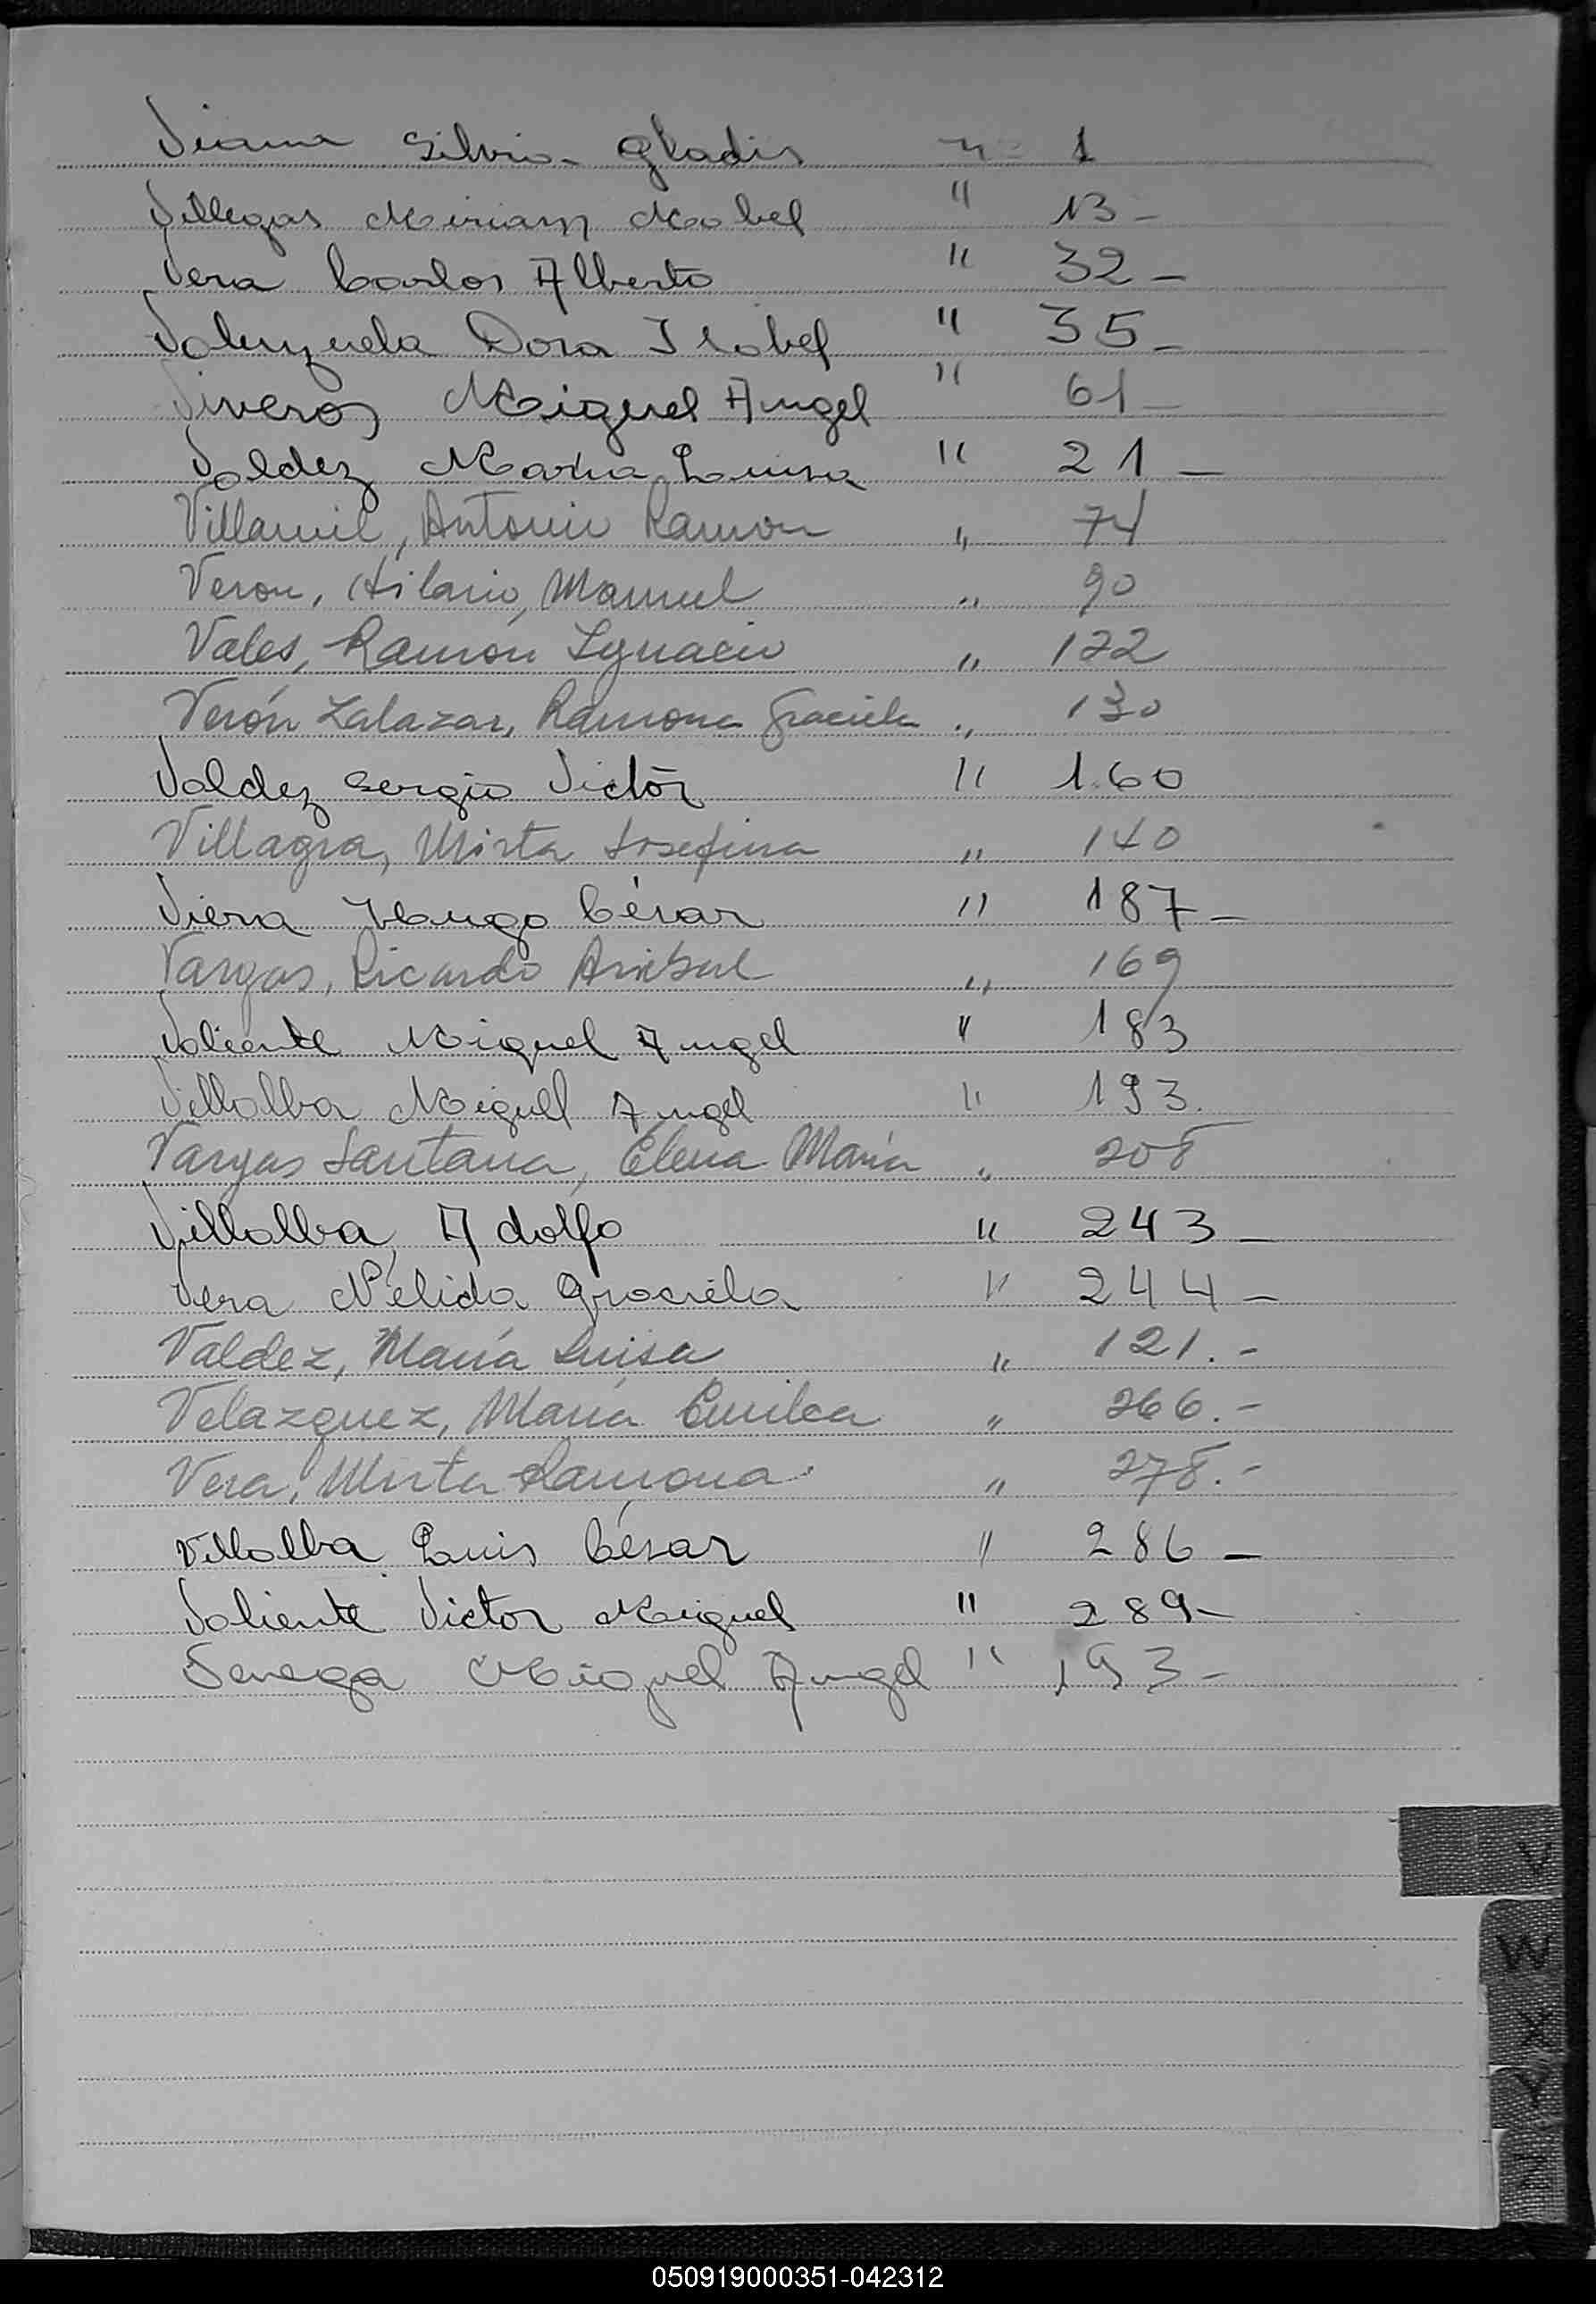 Viana Silvia Gladis nº 1
Villegas Miriam Mabel " 13 -
Vera Carlos Alberto " 32 -
Valenzuela Dora Isabel " 35 -
Viveros Miguel Angel " 61 -
Valdez Maria Luisa " 21 -
Villamil, Antonio Ramon " 74
Veron, Hilario, Manuel " 90
Vales, Ramón Ignacio " 122
Verón Zalazar, Ramona Graciela " 130
Valdez Sergio Victór " 160
Villagra, Mirta Josefina " 140
Viera Hugo César " 187 -
Vargas, Ricardo Anibal " 169
Valiente Miguel Angel " 183
Villalba Miguel Angel " 193.
Vargas Santana, Elena María " 208
Villalba, Adolfo " 243 -
Vera Nélida Graciela " 244 -
Valdez, María Luisa " 121. -
Velazquez, María Emilia " 266. -
Vera, Mirta Ramona " 278. -
Villalba Luis César " 286 -
Valiente Victor Miguel " 289 -
Miguel Angel " 193 -
V
W
X
Y
Z
050919000351-042312